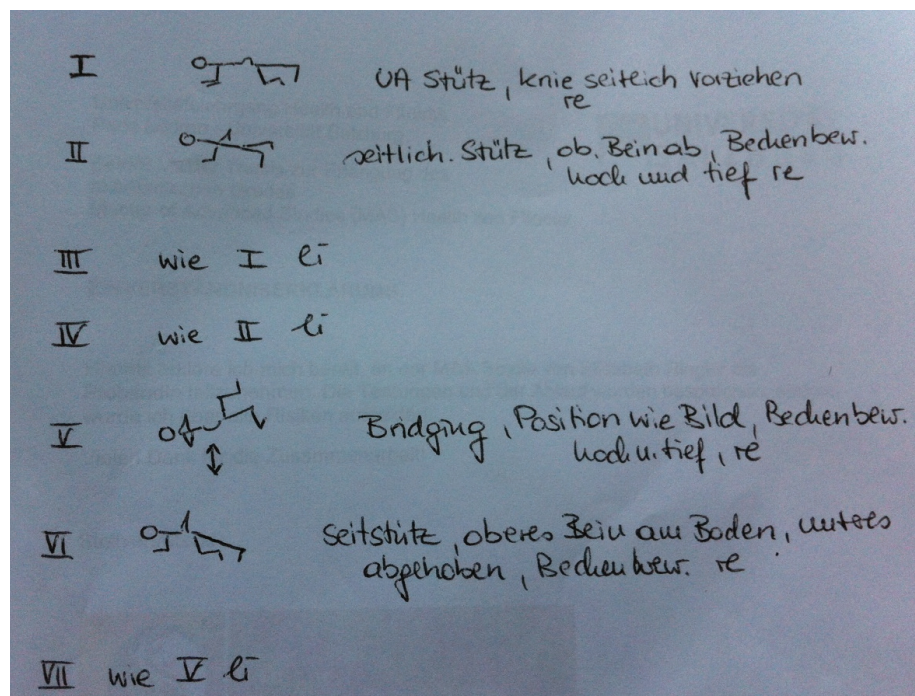 I UA Stütz, knie seitlich vorziehen
re
II seitlich. Stütz, ob. Bein ab, Beckenbew.
hoch und tief re
III wie I li
IV wie II li
V Bridging, Position wie Bild, Beckenbew.
hoch u. tief, re
VI Seitstütz, oberes Bein am Boden, unteres
abgehoben, Beckenbew. re
VII wie V li